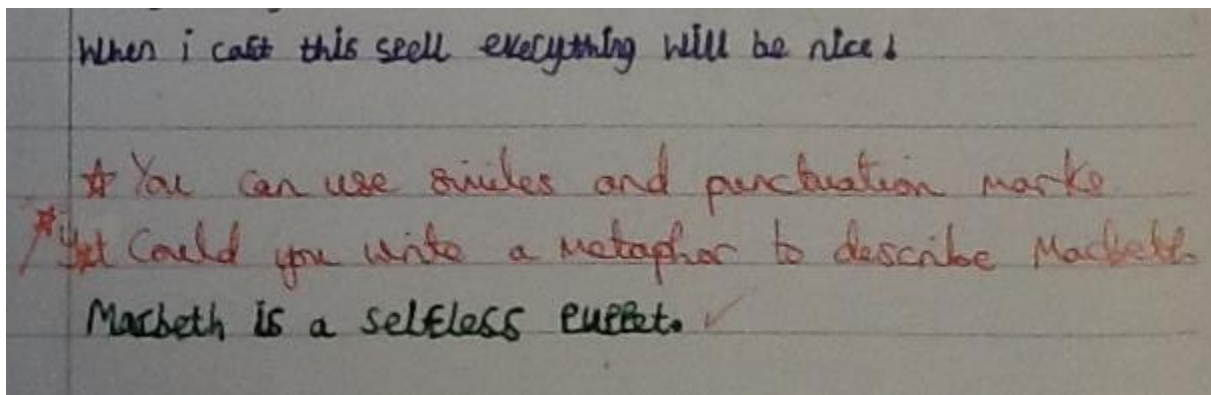 When i cast this spell everything will be nice!
☆ You can use similes and punctuation marks
Could you write a metaphor to describe Macbeth.
Macbeth is a selfless puppet. ✓